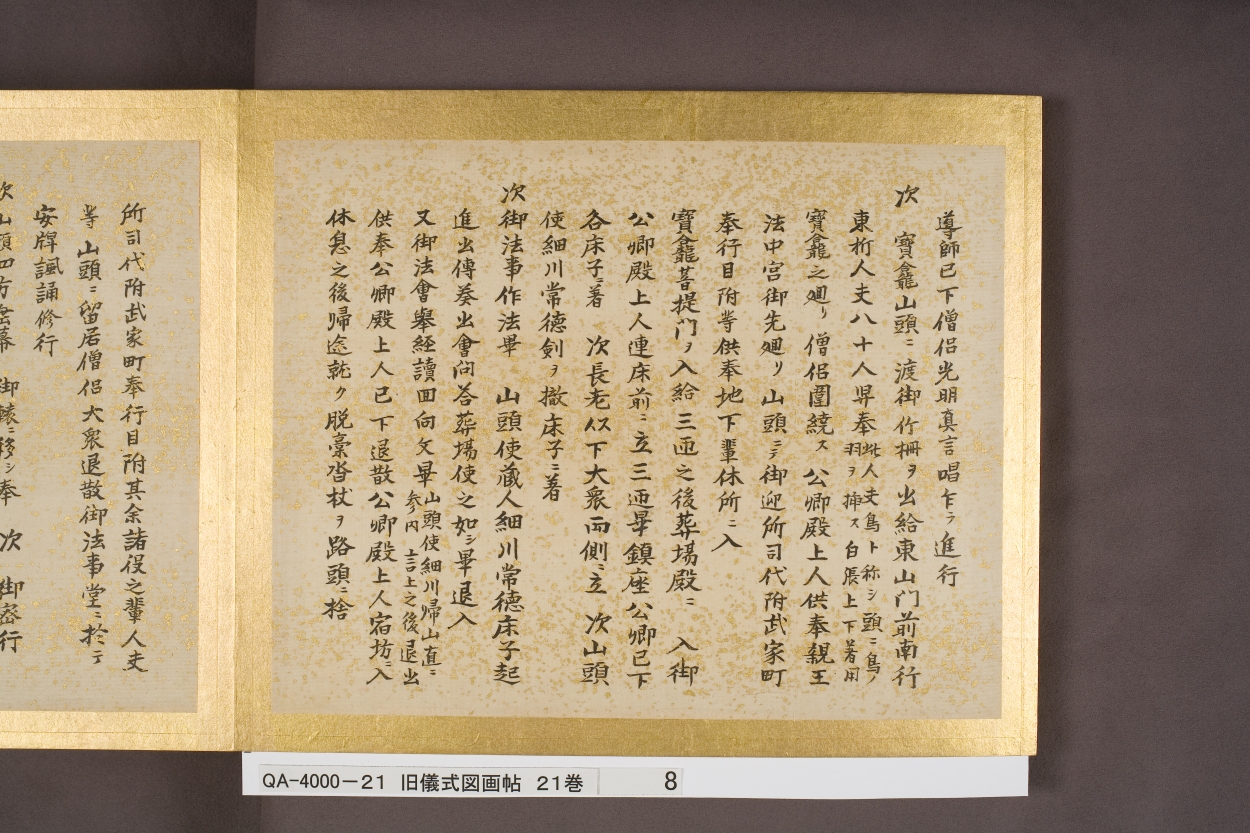 導師已下僧侶光明真言唱乍ラ進行
次　寶龕山頭ニ渡御竹柵ヲ出給東山门前南行
東折人夫八十人舁奉此人夫鳥ト称シ頭ニ鳥ノ
羽ヲ挿ス白張上下著用
寶龕之廻リ僧侶圍繞ス公卿殿上人供奉親王
法中宮御先廻リ山頭ニテ御迎所司代附武家町
奉行目附等供奉地下輩休所ニ入
寶龕菩提门ヲ入給三匝之後葬場殿ニ　入御
公卿殿上人連床前ニ立三匝畢鎮座公卿已下
各床子ニ著　次長老以下大衆両側ニ立　次山頭
使細川常徳剣ヲ撤床子ニ著
次御法事作法畢　山頭使蔵人細川常徳床子起
進出傳奏出會问答葬場使之如シ畢退入
又御法會舉経讀回向文畢山頭使細川帰山直ニ
参内　言上之後退出
供奉公卿殿上人已下退散公卿殿上人宿坊ニ入
休息之後帰途就ク脱藁沓杖ヲ路頭ニ捨
所司代附武家町奉行目附其余諸役之輩人夫
等　山頭ニ留居僧侶大衆退散御法事堂ニ於テ
安牌諷誦修行
次山頭四方　御　移シ奉　次　御密行
QA-4000－21　旧儀式図画帖　21巻　8